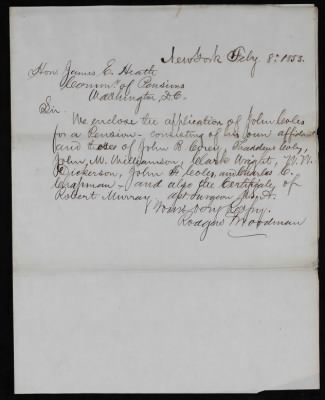 New York Feby. 8: 1853.
Hon James E. Heath
Commr. of Pensions
Washington D.C.
Sir.
We enclose the application of John Coles
for a Pension - consisting of his own affidavit
and those of John B. Corey, Thaddeus Coles,
John, M. Williamson, Clark Wright, W. W.
Dickerson, John H. Coles, and Charles C.
Chapman - and also the Certificate, of
Robert Murray Surgeon
Yours very Resply.
Rodgers Woodman